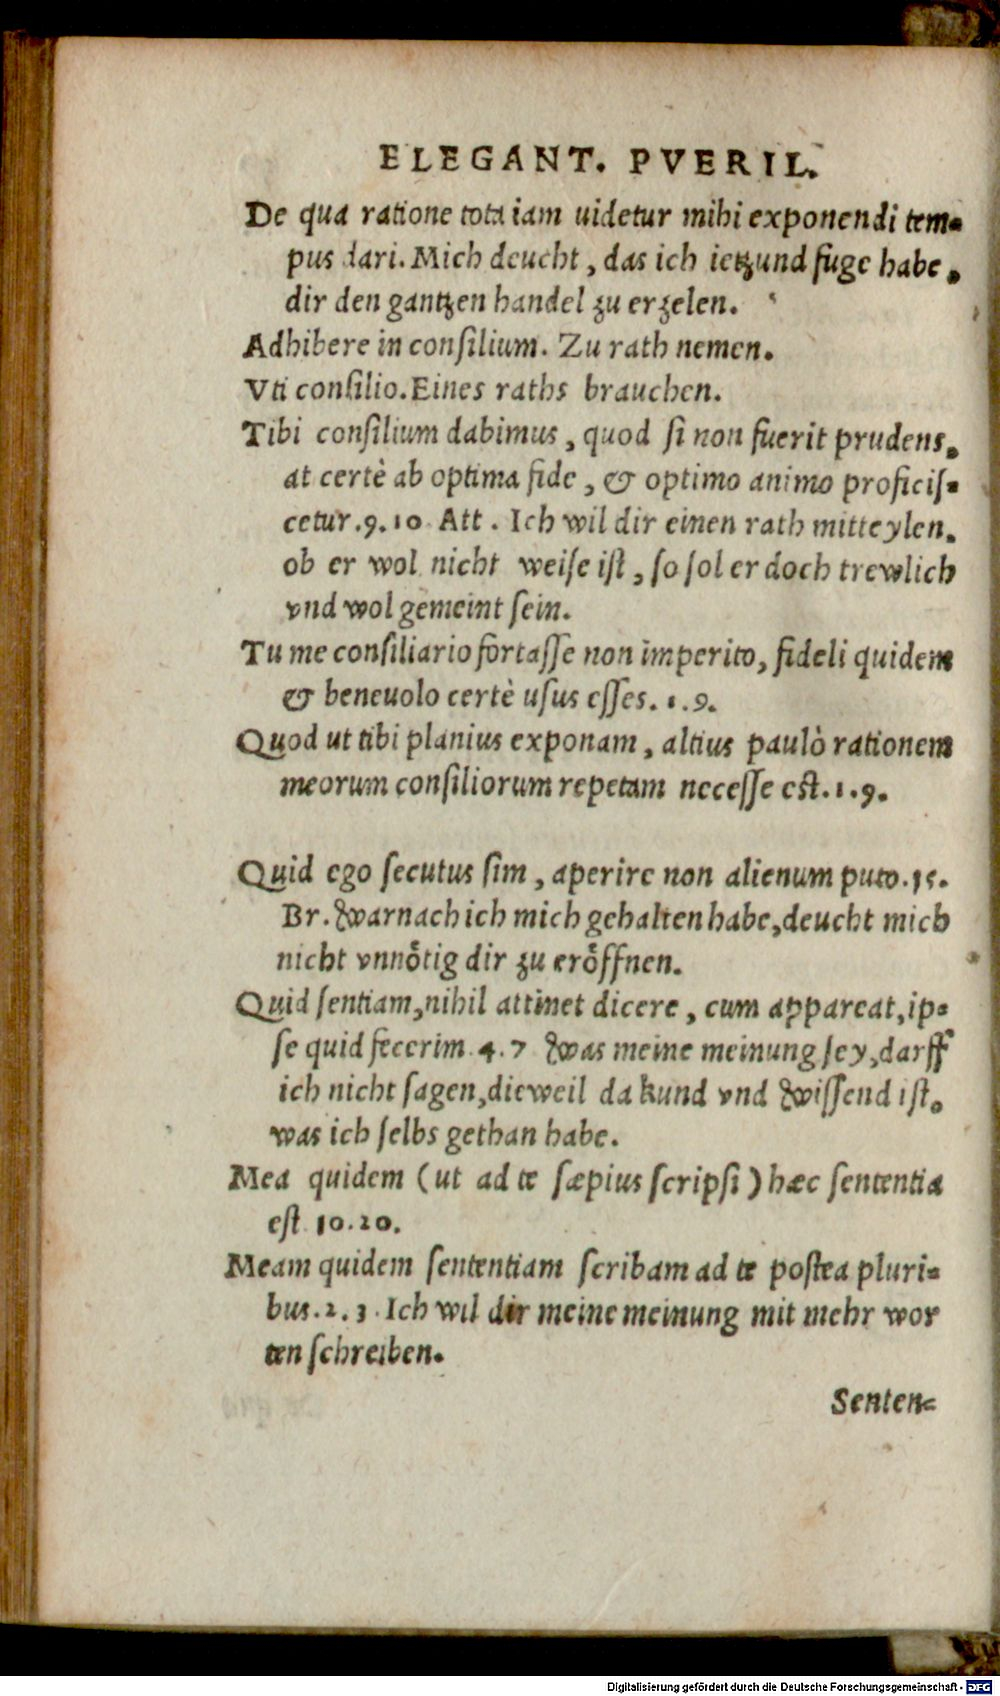 ELEGANT. PVERIL.
De qua ratione tota iam uidetur mihi exponendi tem-
pus dari. Mich deucht, das ich ietzund fuge habe,
dir den gantzen handel zu erzelen.
Adhibere in consilium. Zu rath nemen.
Vti consilio. Eines raths brauchen.
Tibi consilium dabimus, quod si non fuerit prudens,
at certè ab optima fide, & optimo animo proficis-
cetur. 9. 10 Att. Ich wil dir einen rath mitteylen,
ob er wol nicht weise ist, so sol er doch trewlich
vnd wol gemeint sein.
Tu me consiliario fortasse non imperito, fideli quidem
& beneuolo certè usus esses. 1. 9.
Quod ut tibi planius exponam, altius paulò rationem
meorum consiliorum repetam necesse est. 1. 9.
Quid ego secutus sim, aperire non alienum puto. 15.
Br. Warnach ich mich gehalten habe, deucht mich
nicht vnnötig dir zu eröffnen.
Quid sentiam, nihil attinet dicere, cum appareat, ip-
se quid fecerim. 4. 7 Was meine meinung sey, darff
ich nicht sagen, dieweil da kund vnd wissend ist,
was ich selbs gethan habe.
Mea quidem (ut ad te sæpius scripsi) hæc sententia
est 10. 20.
Meam quidem sententiam scribam ad te postea pluri-
bus. 2. 3. Ich wil dir meine meinung mit mehr wor
ten schreiben.
Senten-
Digitalisierung gefördert durch die Deutsche Forschungsgemeinschaft - DFG